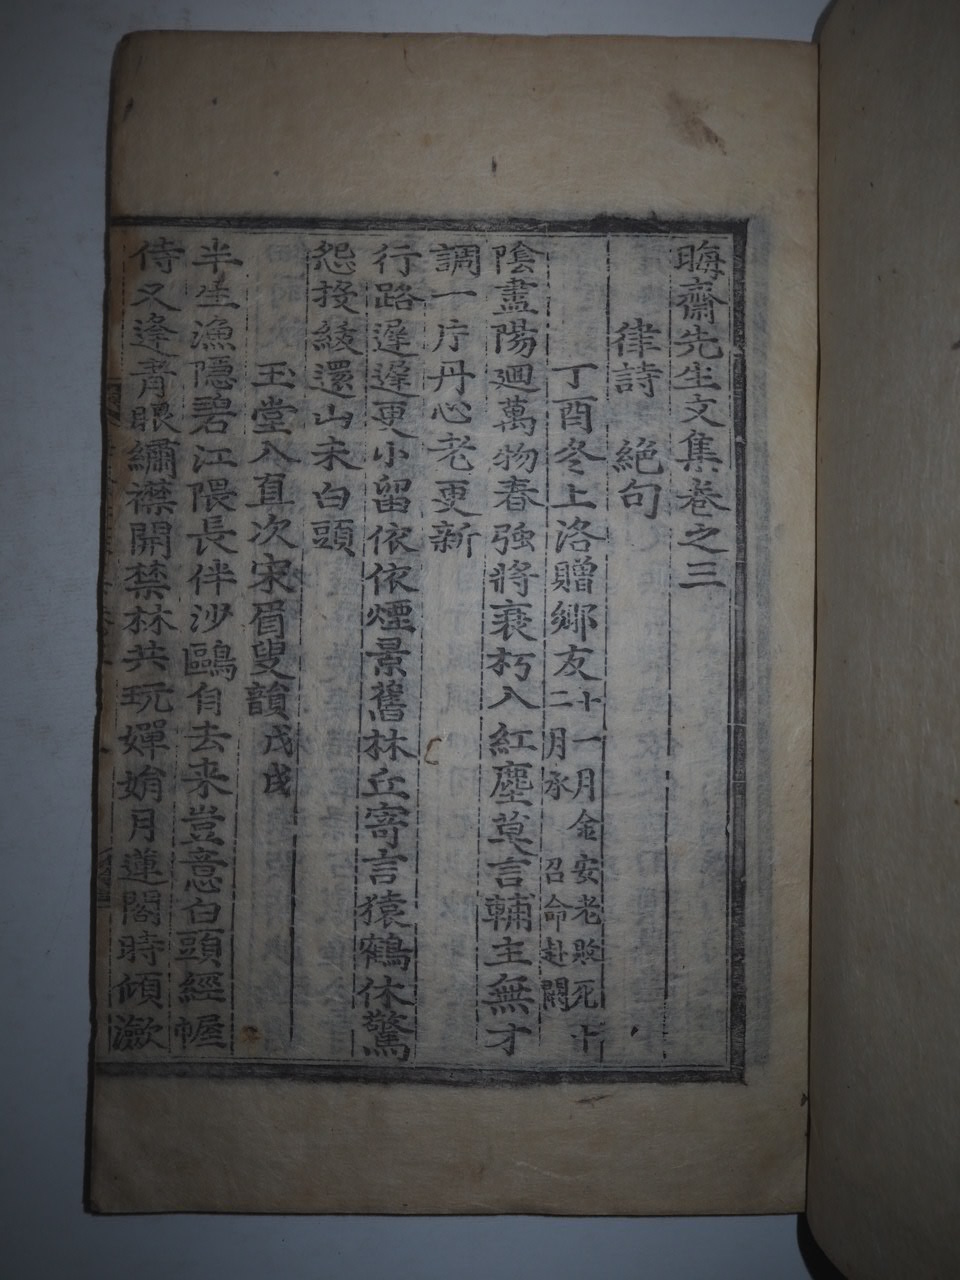 晦齋先生文集卷之三
律詩 絕句
丁酉冬上洛贈鄉友 十一月金安老敗死十二月承 召命赴闕
陰盡陽廻萬物春強將衰朽入紅塵莫言輔主無才
調一片丹心老更新
行路遲遲更小留依依煙景舊林丘寄言猿鶴休驚
怨投綬還山未白頭
玉堂入直次宋眉叟韻 戊戌
半生漁隱碧江隈長伴沙鷗自去来豈意白頭經幄
侍又逢青眼繡襟開禁林共玩嬋娟月蓮閣時傾瀲